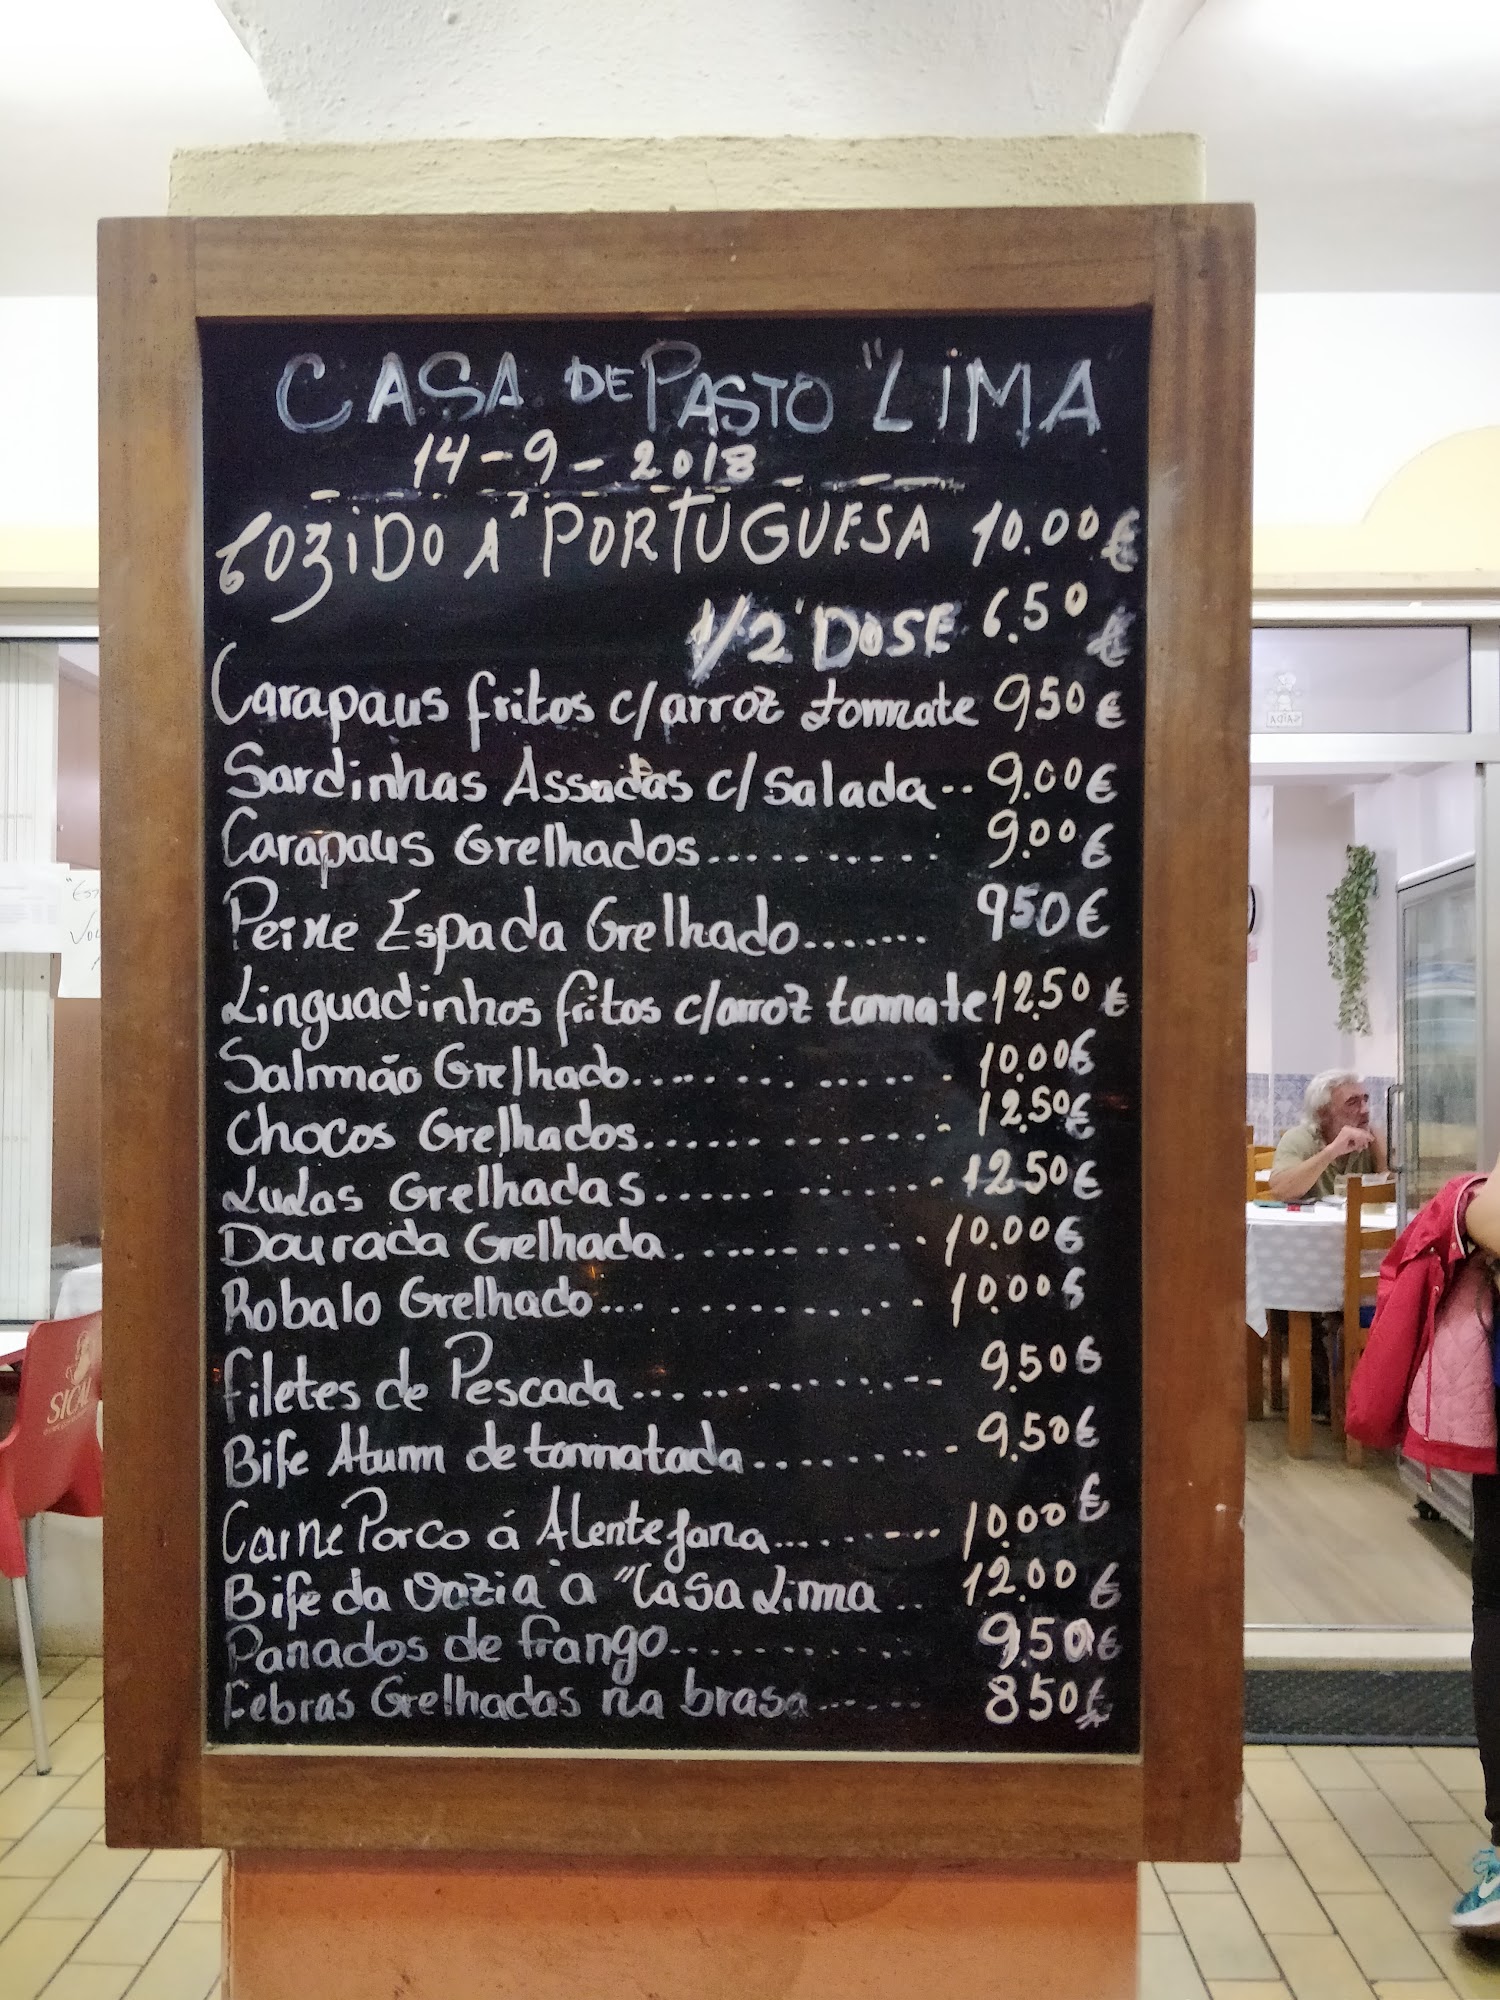 CASA DE PASTO "LIMA
14-9-2018
COZIDO A` PORTUGUESA 10.00€
1/2 DOSE 6.50 €
Carapaus fritos c/arroz tomate 950€
Sardinhas Assadas c/salada.. 9.00€
Carapaus Grelhados.......... 9.00€
Peixe Espada Grelhado....... 950€
Linguadinhos fritos c/arroz tomate 12.50€
Salmão Grelhado............ 10.00€
Chocos Grelhados............ 12.50€
Lulas Grelhadas............ 12.50€
Dourada Grelhada.......... 10.00€
Robalo Grelhado............ 10.00€
filetes de Pescada............ 9.50€
Bife Atum de tomatada......... 9.50€
Carne Porco á Alentejana....... 10.00€
Bife da vazia à "Casa Lima .. 12.00€
Panados de frango........... 9.50€
Febras Grelhadas na brasa...... 850€
SICAL
SAÍDA